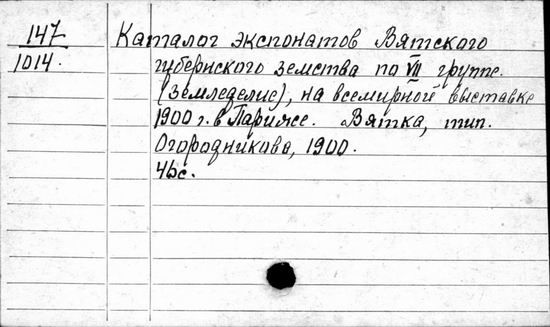 147
1014.
Каталог экспонатов Вятского
губернского земства по VII группе.
(земледелие), на всемирной выставке
1900 г. в Париже. Вятка, тип.
Огородникова, 1900.
46с.